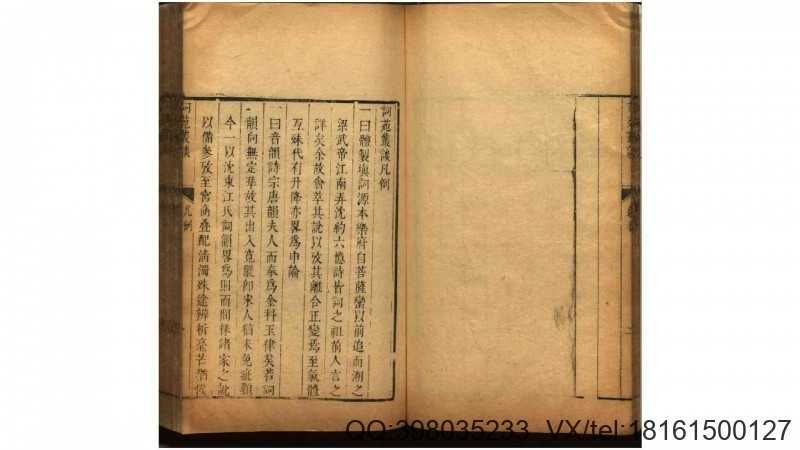 詞苑叢談凡例
一曰體製填詞源本樂府自菩薩蠻以前追而溯之
梁武帝江南弄沈約六憶詩皆詞之祖前人言之
詳矣余故會萃其說以攷其離合正變焉至氣體
互殊代有升降亦畧爲申論
一曰音韻詩宗唐韻夫人而奉爲金科玉律矣若詞
韻向無定準故其出入寬嚴卽宋人猶未免疵纇
今一以沈東江氏詞韻畧爲則而間採諸家之說
以備參攷至宮商疊配清濁殊途辨析毫芒猶俟
詞苑叢談
凡例
QQ:398035233 VX/tel:18161500127